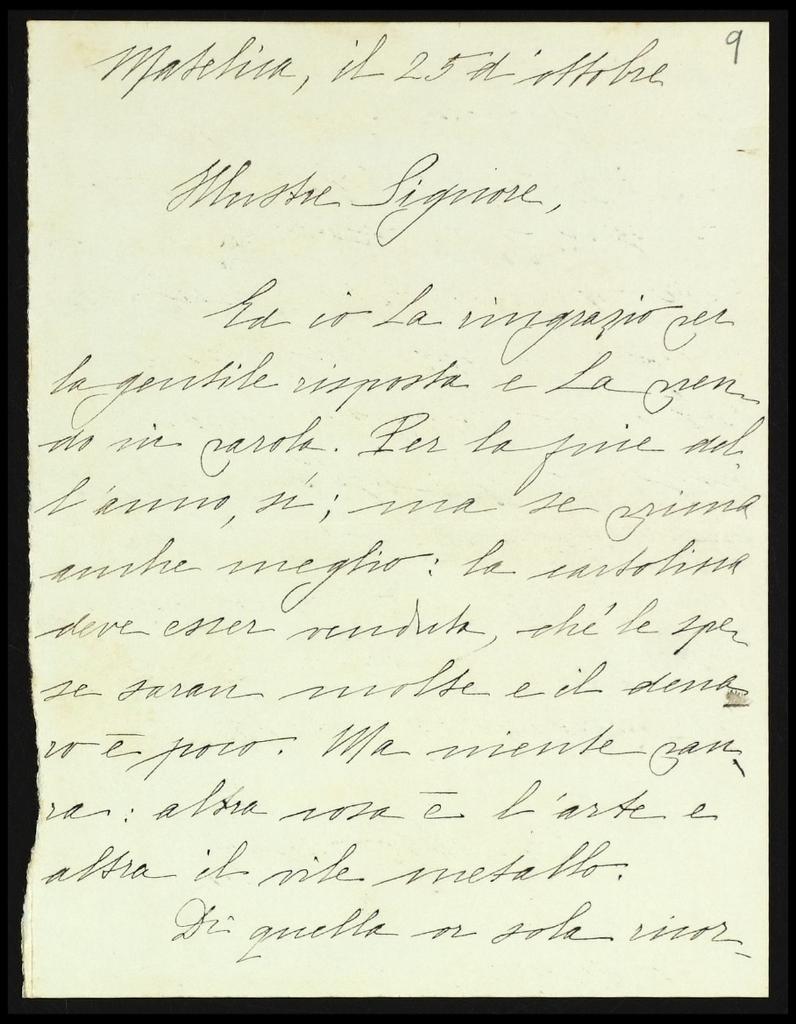 9
Matelica, il 25 d'ottobre
Illustre Signore,
Ed io La ringrazio per
la gentile risposta e La pren-
do in parola. Per la fine del-
l'anno, sì; ma se prima
anche meglio: la cartolina
deve esser venduta, chè le spe-
se saran molte e il dena-
ro è poco. Ma niente pau-
ra: altra cosa è l'arte e
altra il vile metallo.
Di quella or sola ricor-